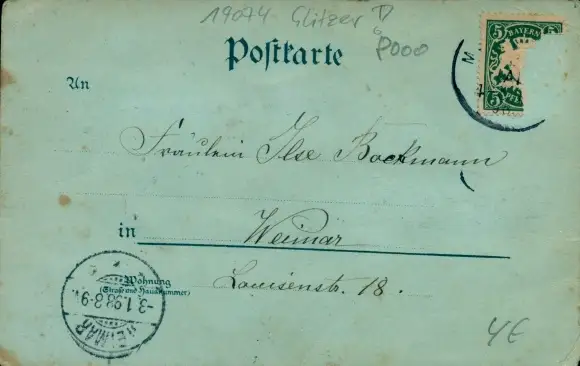 19074 Glitzer D
P000
Postkarte
5 BAYERN 5
5 PF
An
Fräulein Ilse Bockmann
in
Weimar
Wohnung
(Straße und Hausnummer)
Louisenstr. 18.
WEIMAR
-3.1.98.8-9V.
4€